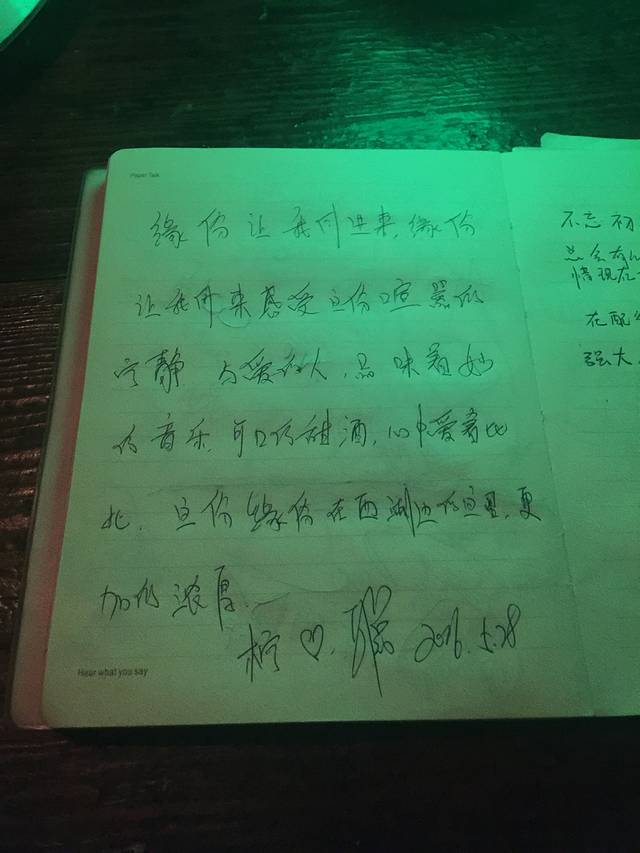 Paper Talk
缘份让我们进来,缘份
让我们来感受这份喧嚣的
宁静 与爱的人,品味着妙
的音乐,可口的甜酒,心中爱着比
此,这份缘份在西湖边的这里,更
加的浓厚..
柠♡. 2016.5.28
Hear what you say
不忘初
总会有
惜现在
在配
强大.